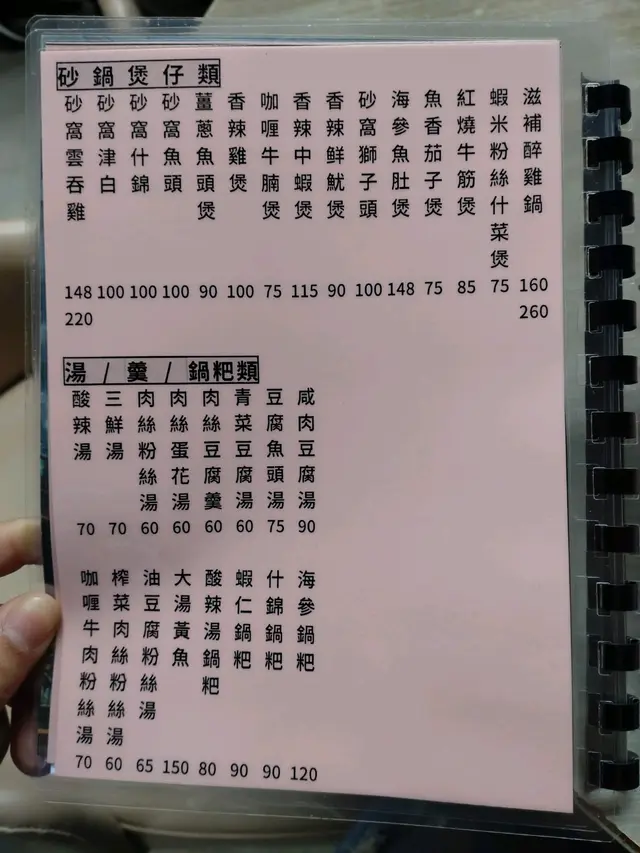 砂鍋煲仔類
砂窩雲吞雞 148 220
砂窩津白 100
砂窩什錦 100
砂窩魚頭 100
薑蔥魚頭煲 90
香辣雞煲 100
咖喱牛腩煲 75
香辣中蝦煲 115
香辣鮮魷煲 90
砂窩獅子頭 100
海參魚肚煲 148
魚香茄子煲 75
紅燒牛筋煲 85
蝦米粉絲什菜煲 75
滋補醉雞鍋 160 260
湯 / 羹 / 鍋粑類
酸辣湯 70
三鮮湯 70
肉絲粉絲湯 60
肉絲蛋花湯 60
肉絲豆腐羹 60
青菜豆腐湯 60
豆腐魚頭湯 75
咸肉豆腐湯 90
咖喱牛肉粉絲湯 70
榨菜肉絲粉絲湯 60
油豆腐粉絲湯 65
大湯黃魚 150
酸辣湯鍋粑 80
蝦仁鍋粑 90
什錦鍋粑 90
海參鍋粑 120